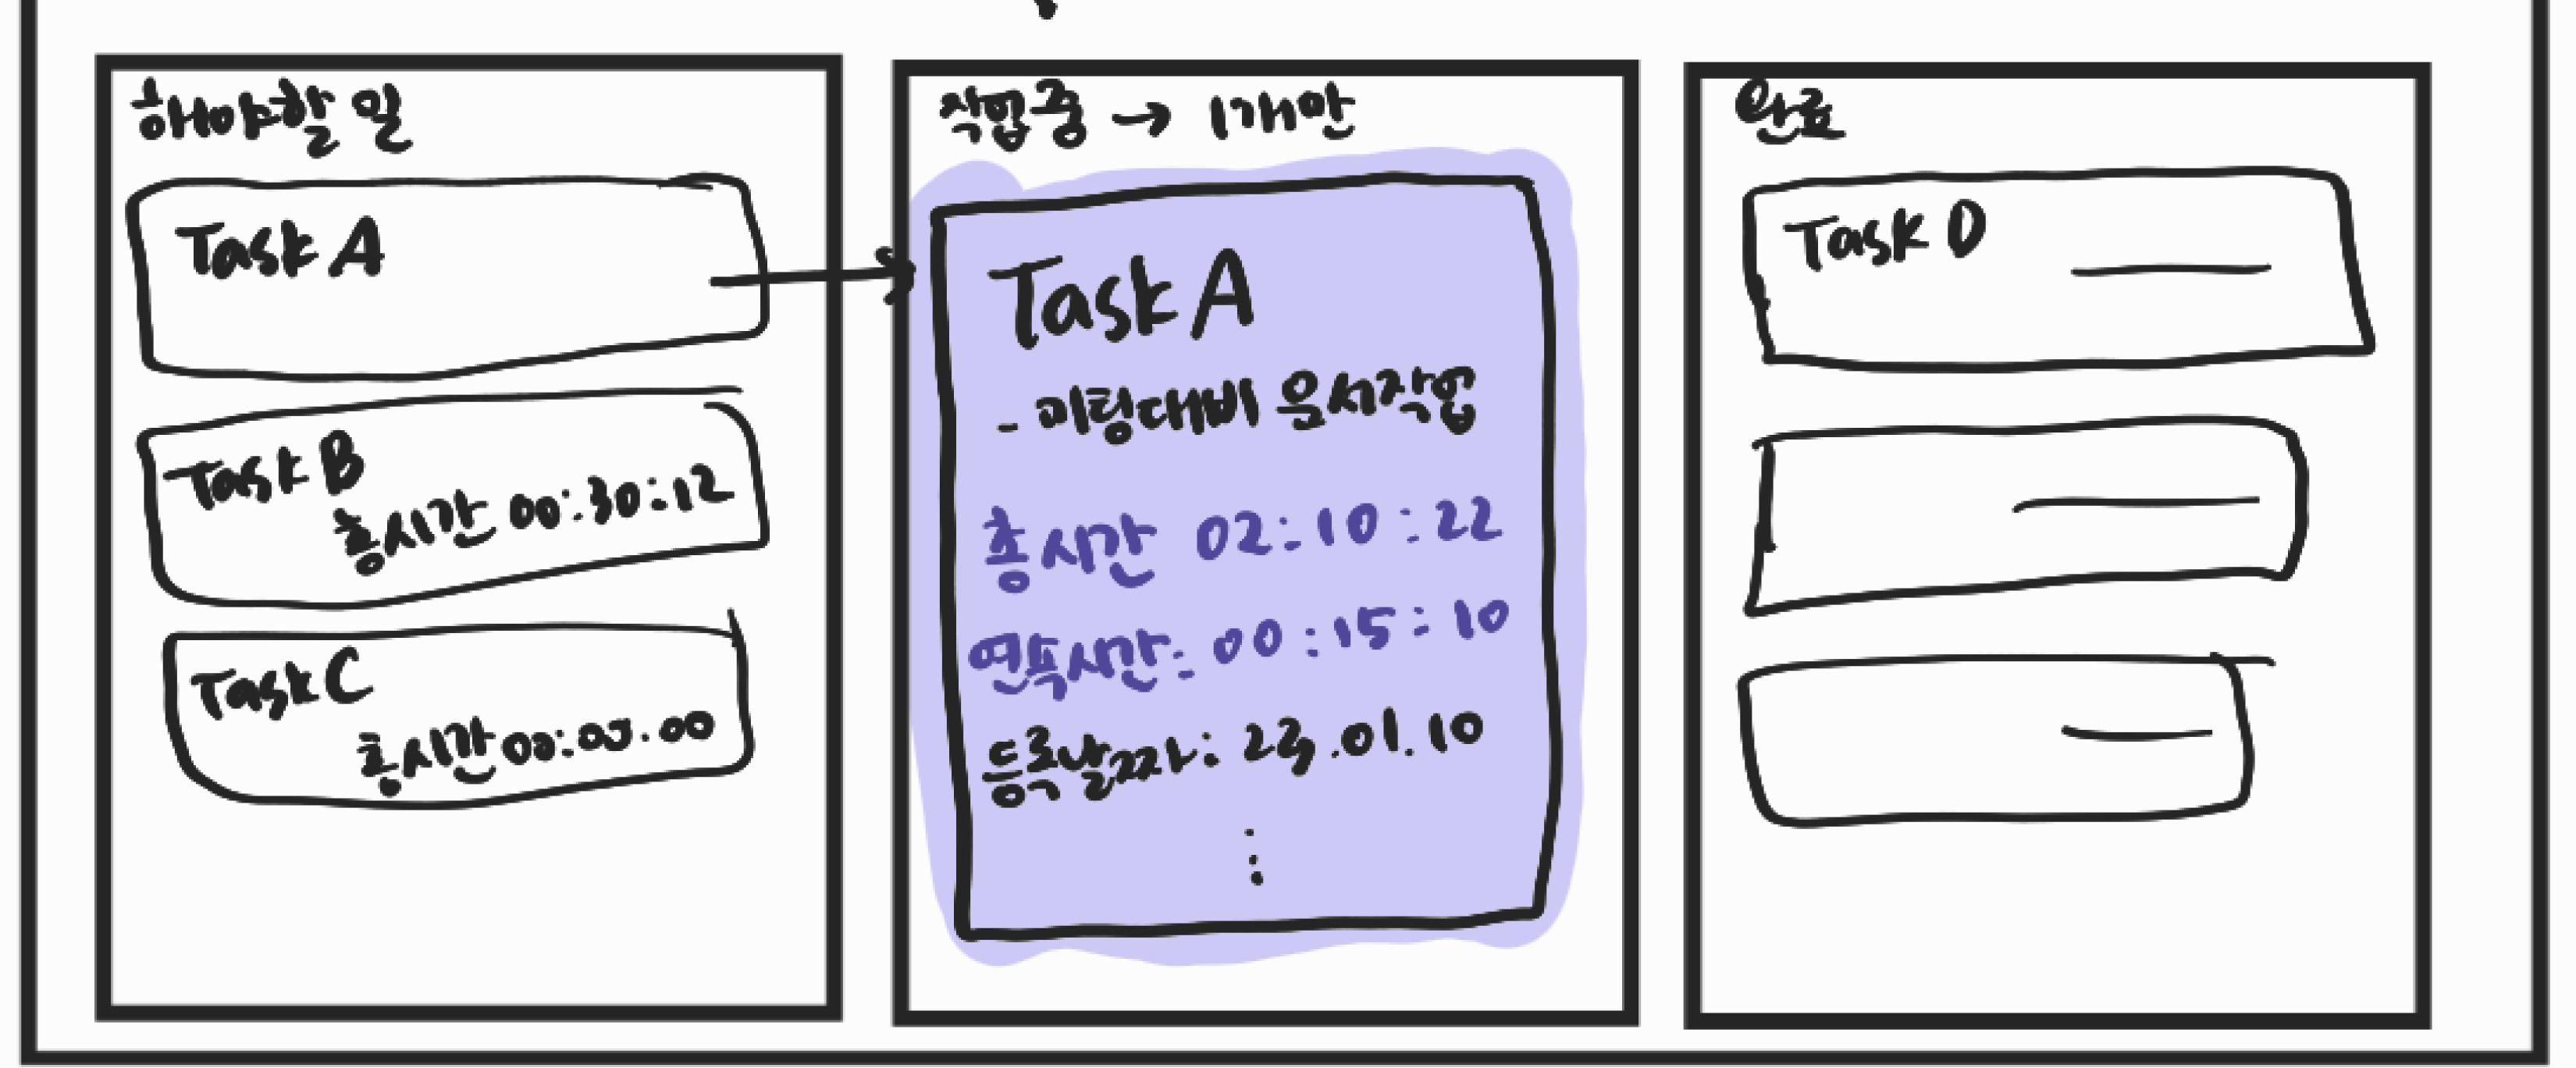 해야할 일
Task A
Task B
총시간 00:30:12
Task C
총시간 00:00.00
작업중 → 1개만
Task A
- 미팅대비 문서작업
총시간 02:10:22
연속시간: 00:15:10
등록날짜: 23.01.10
⋮
완료
Task D